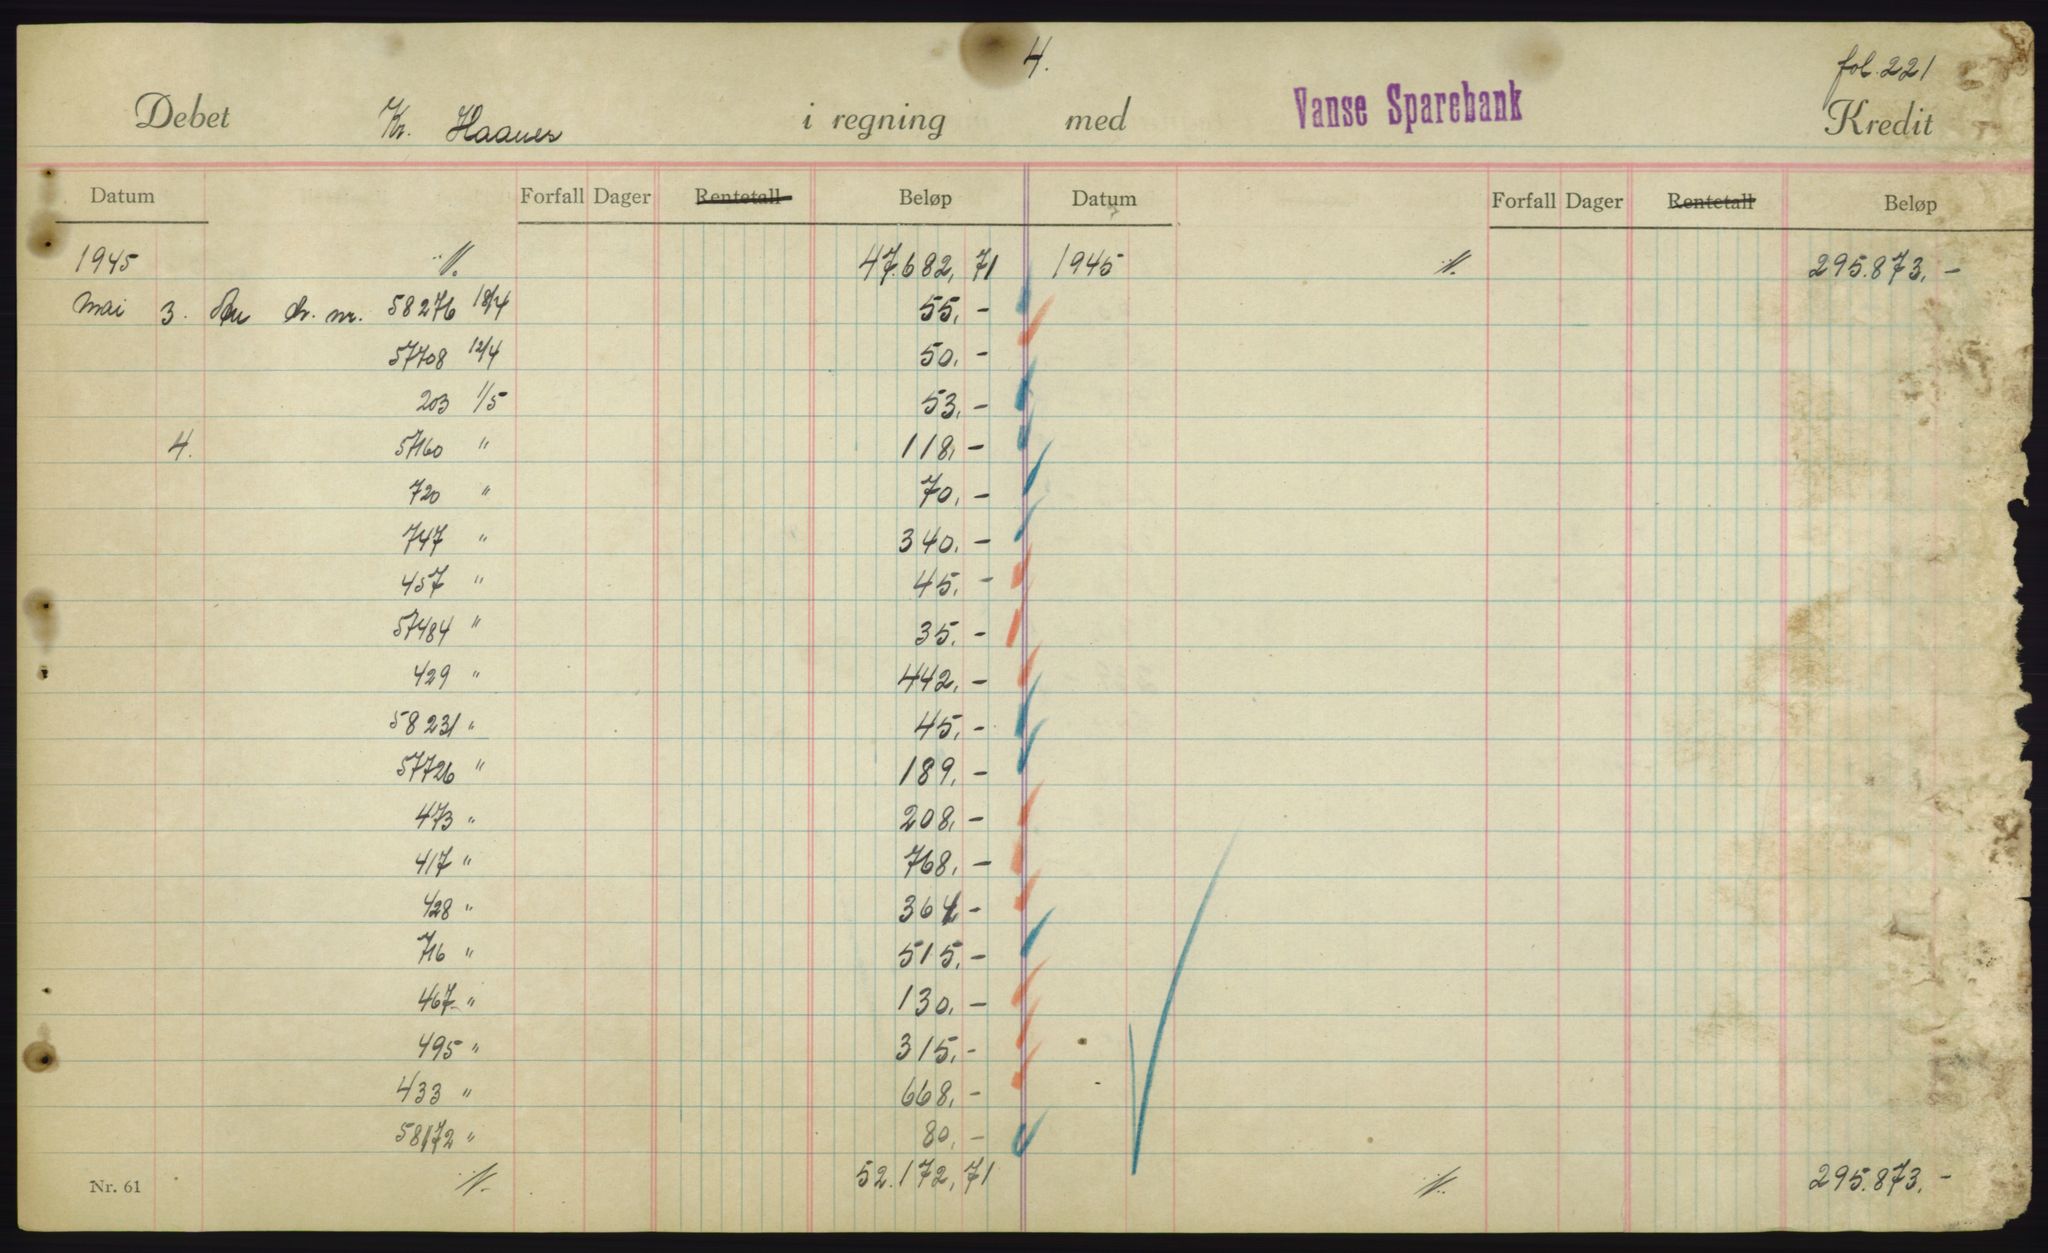 4.
fol. 221
Debet Kr. Haanes i regning med Vanse Sparebank Kredit
Datum Forfall Dager Rentetall Beløp Datum Forfall Dager Rentetall Beløp
1945 ·/·. 47.682,71 1945 ·/·. 295.873,-
Mai 3. ch. nr. 58276 18/4 55,-
57708 12/4 50,-
203 1/5 53,-
4. 57160 " 118,-
720 " 70,-
747 " 340,-
457 " 45,-
57484 " 35,-
429 " 442,-
58231 " 45,-
57726 " 189,-
473 " 208,-
417 " 768,-
428 " 364,-
716 " 515,-
467 " 130,-
495 " 315,-
433 " 668,-
58172 " 80,-
Nr. 61 ·/·. 52.172,71 ·/·. 295.873,-